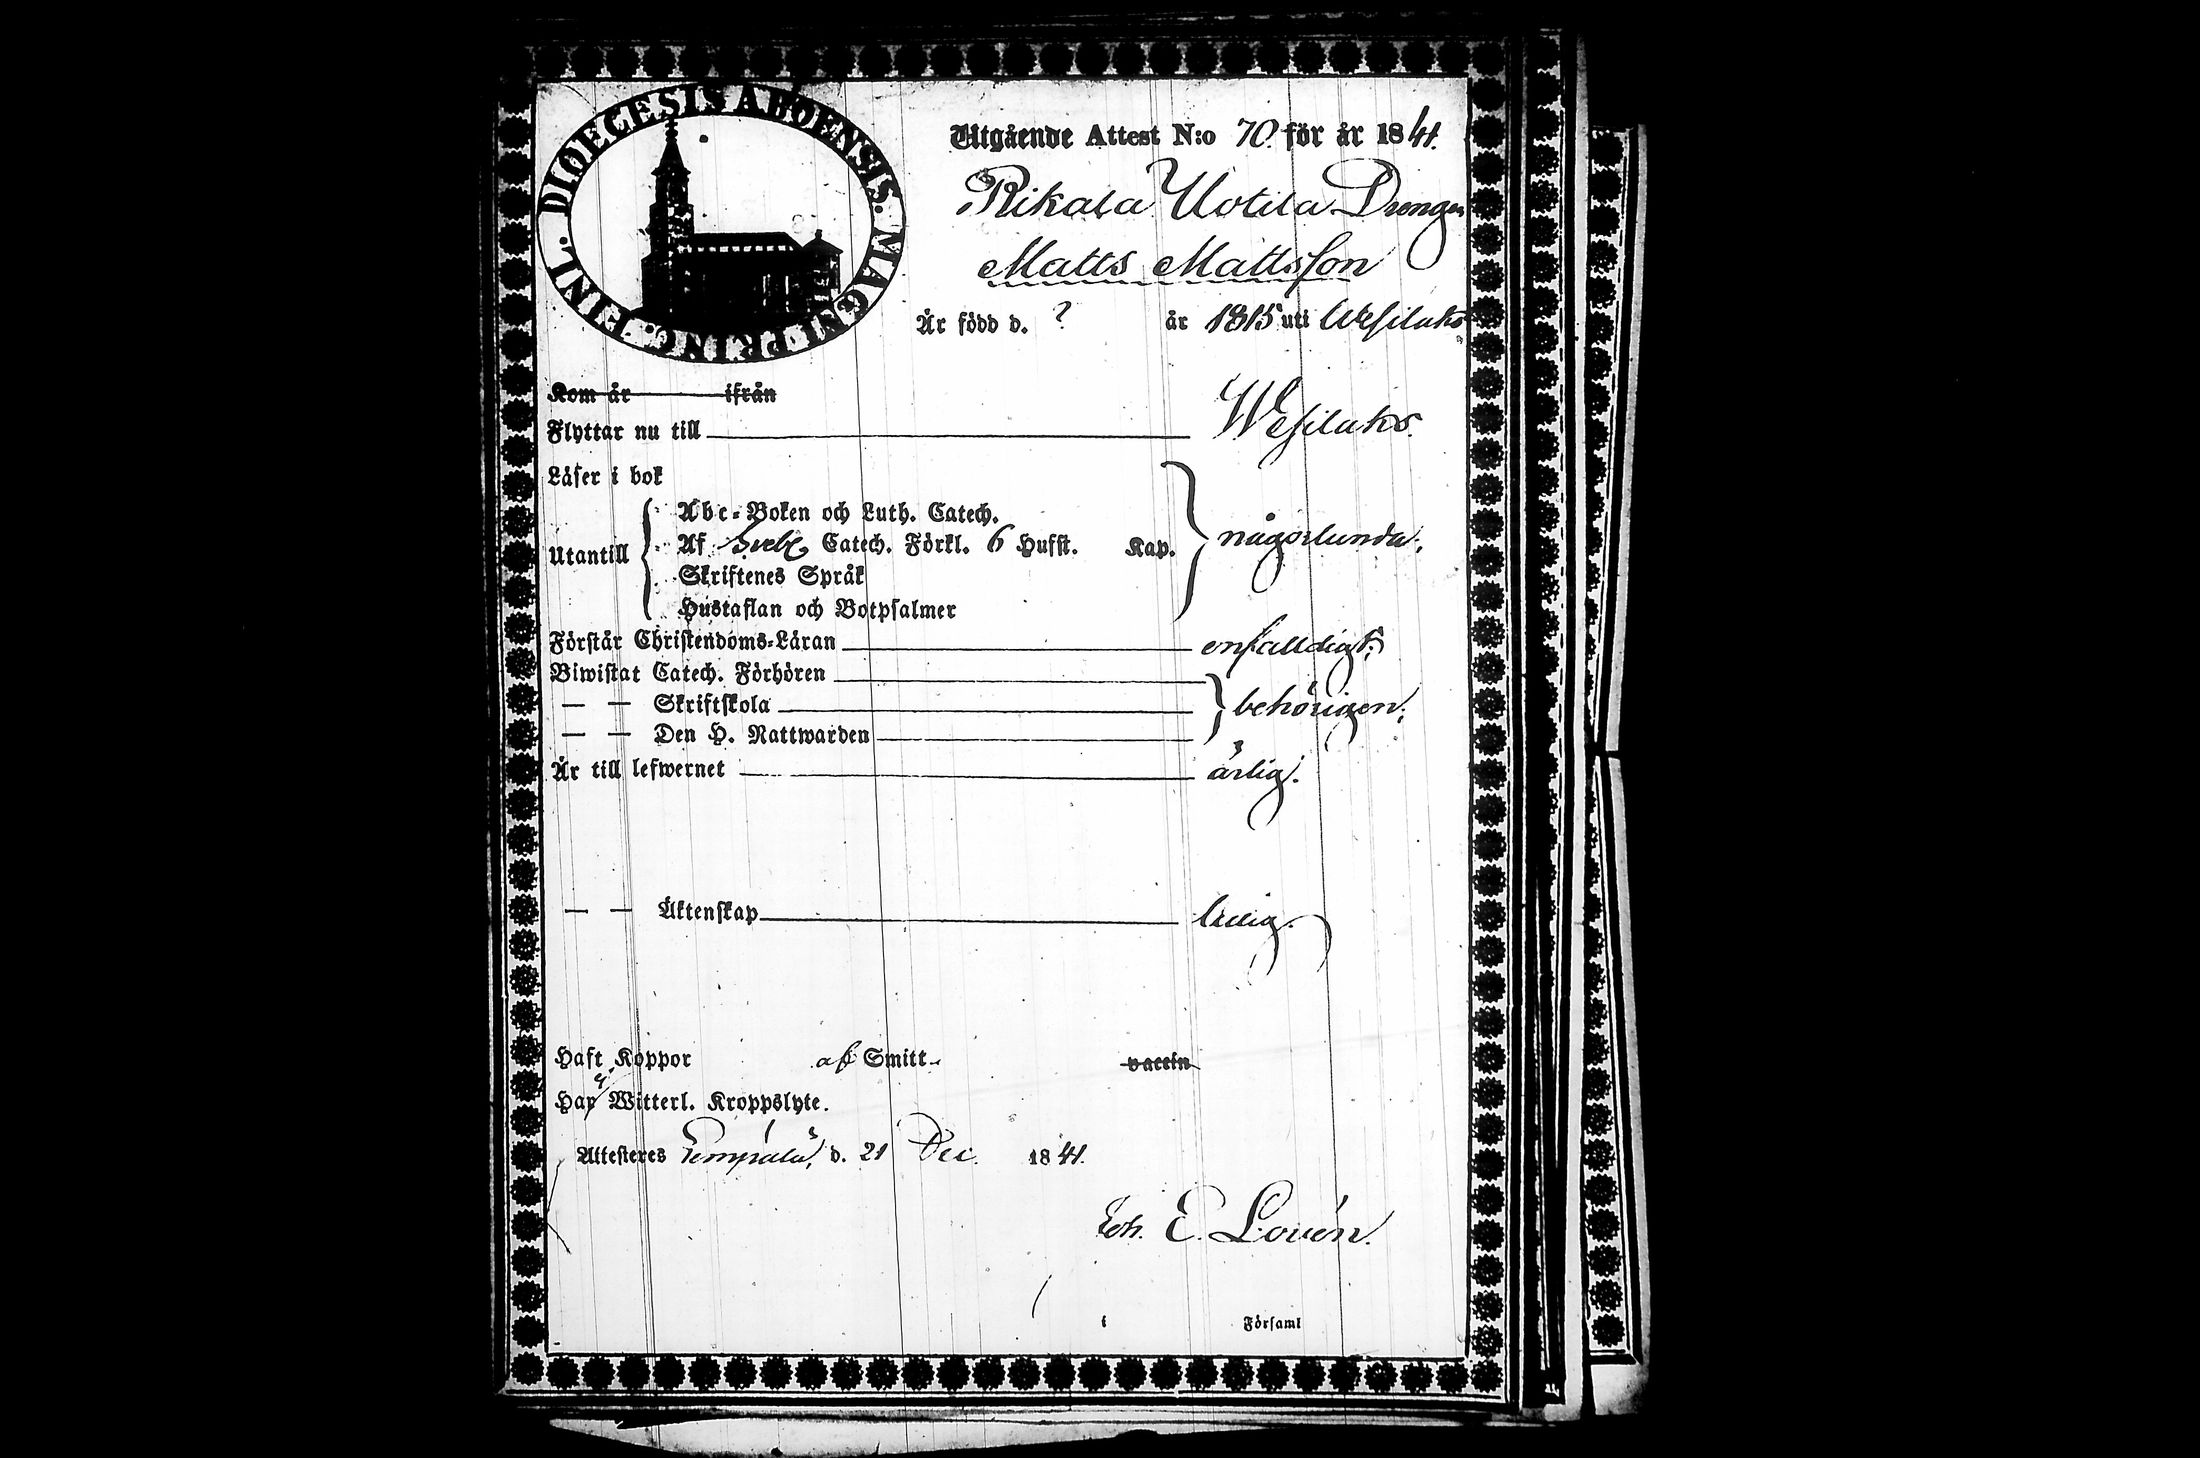 DIOECESIS ABOENSIS. MAGNI PRINC. FINL.
Utgående Attest N:o 70 för år 1841.
Rikala Uotila Drengen
Matts Mattsson
Är född d. ? år 1815 uti Wesilaks
Kom år ifrån
Flyttar nu till Wesilaks.
Läser i bok
Abc-Boken och Luth. Catech.
Utantill Af Sveb. Catech. Förkl. 6 Hufst. Kap. någorlunda;
Skriftenes Språk
Hustaflan och Botpsalmer
Förstår Christendoms-Läran enfalldigt;
Biwistat Catech. Förhören
— — Skriftskola behörigen;
— — Den H. Nattwarden
Är till lefwernet ärlig.
— — Äktenskap ledig.
Haft Koppor af Smitt vaccin
Har ej Witterl. Kroppslyte.
Attesteras Lempälä, d. 21 Dec. 1841.
Joh. E. Lovén.
i Församl